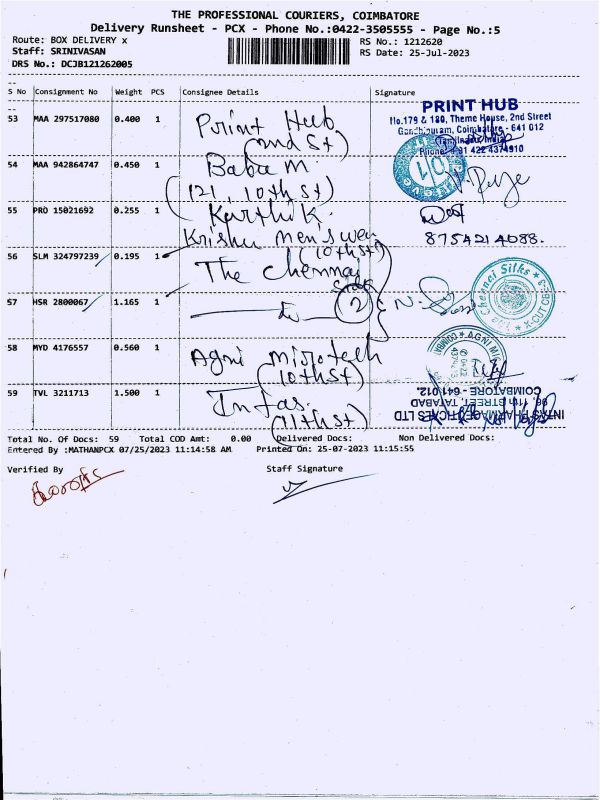 THE PROFESSIONAL COURIERS, COIMBATORE
Delivery Runsheet - PCX - Phone No.:0422-3505555 - Page No.:5
Route: BOX DELIVERY x
RS No.: 1212620
Staff: SRINIVASAN
RS Date: 25-Jul-2023
DRS No.: DCJB121262005
S No Consignment No Weight PCS Consignee Details Signature
53 MAA 297517080 0.400 1 Print Hub
(2nd St)
PRINT HUB
No.179 & 180, Theme House, 2nd Street
Gandhipuram, Coimbatore - 641 012
Tamilnadu, India
Phone: +91 422 4374910
54 MAA 942864747 0.450 1 Baba M
(121, 10th st)
55 PRO 15021692 0.255 1 Karthik
Krishna men's wear
(10th st)
8754214088.
56 SLM 324797239 0.195 1 The Chennai
Silks
The Chennai Silks
57 HSR 2800067 1.165 1 do (2)
58 MYD 4176557 0.560 1 Agni microtech
(10th st)
59 TVL 3211713 1.500 1 Intas.
(11th st)
INTAS PHARMACEUTICALS LTD
11th STREET, TATABAD
COIMBATORE - 641 012.
Total No. Of Docs: 59 Total COD Amt: 0.00 Delivered Docs: Non Delivered Docs:
Entered By :MATHANPCX 07/25/2023 11:14:58 AM Printed On: 25-07-2023 11:15:55
Verified By Staff Signature